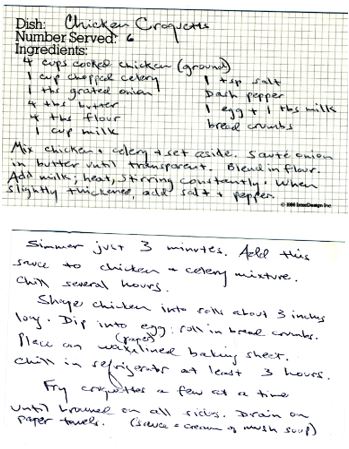 Dish: Chicken Croquettes
Number Served: 6
Ingredients:
4 cups cooked chicken (ground)
1 cup chopped celery
1 tbs grated onion
4 tbs butter
4 tbs flour
1 cup milk
1 tsp salt
Dash pepper
1 egg + 1 tbs milk
bread crumbs
Mix chicken + celery + set aside. Sauté onion
in butter until transparent. Blend in flour.
Add milk; heat, stirring constantly. When
slightly thickened, add salt + pepper.
Simmer just 3 minutes. Add this
sauce to chicken + celery mixture.
Chill several hours.
Shape chicken into rolls about 3 inches
long. Dip into egg; roll in bread crumbs.
Place on wax (paper) lined baking sheet.
Chill in refrigerator at least 3 hours.
Fry croquettes a few at a time
until browned on all sides. Drain on
paper towels. (sauce = cream of mush soup)